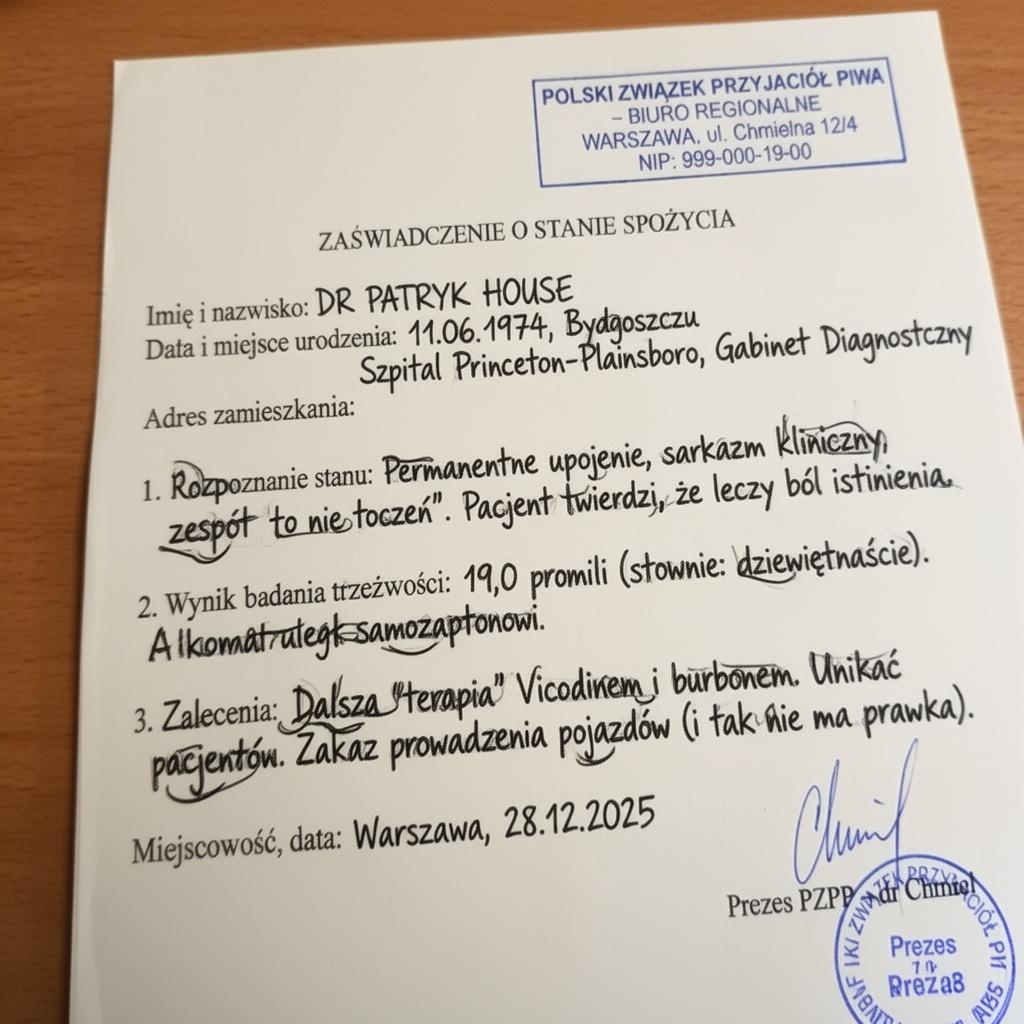 POLSKI ZWIĄZEK PRZYJACIÓŁ PIWA
– BIURO REGIONALNE
WARSZAWA, ul. Chmielna 12/4
NIP: 999-000-19-00
ZAŚWIADCZENIE O STANIE SPOŻYCIA
Imię i nazwisko: DR PATRYK HOUSE
Data i miejsce urodzenia: 11.06.1974, Bydgoszczu
Szpital Princeton-Plainsboro, Gabinet Diagnostczny
Adres zamieszkania:
1. Rozpoznanie stanu: Permanentne upojenie, sarkazm kliniczny,
zespót to nie toczeń". Pacjent twierdzi, że leczy ból istinienia.
2. Wynik badania trzeźwości: 19,0 promili (stownie: dziewiętnaście).
Alkomat uległ samozaptonowi.
3. Zalecenia: Dalsza "terapia" Vicodinem i burbonem. Unikać
pacjentów. Zakaz prowadzenia pojazdów (i tak nie ma prawka).
Miejscowość, data: Warszawa, 28.12.2025
Prezes PZPP dr Chmiel
Prezes